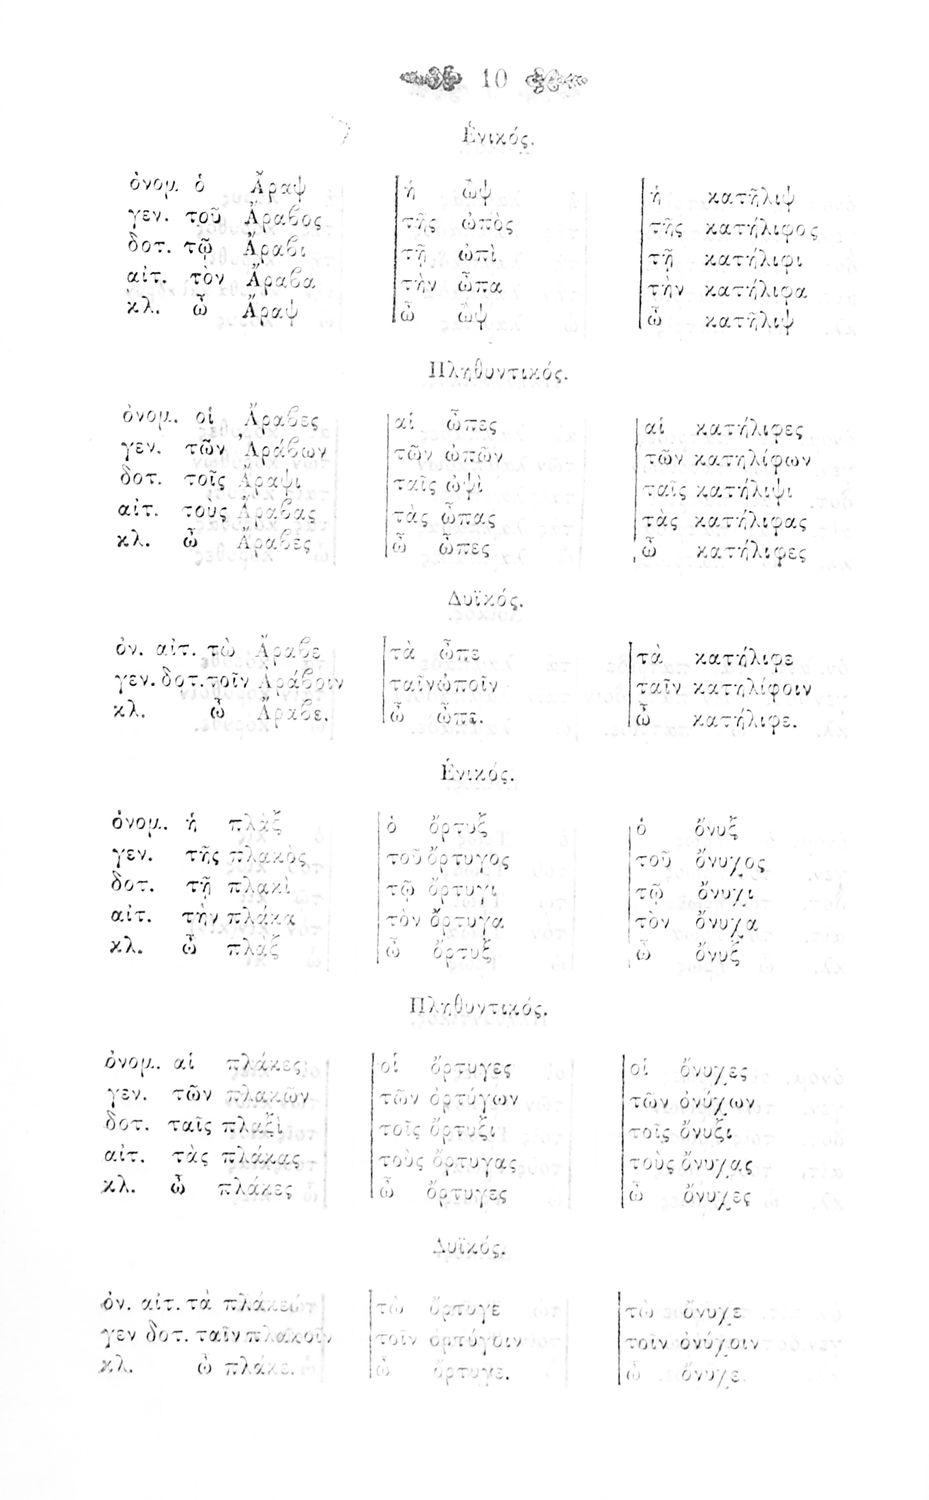 10
Ἑνικός.
ὀνομ. ὁ Ἄραψ | ἡ ὤψ | ἡ κατῆλιψ
γεν. τοῦ Ἄραβος | τῆς ὠπὸς | τῆς κατήλιφος
δοτ. τῷ Ἄραβι | τῇ ὠπὶ | τῇ κατήλιφι
αἰτ. τὸν Ἄραβα | τὴν ὦπα | τὴν κατήλιφα
κλ. ὦ Ἄραψ | ὦ ὤψ | ὦ κατῆλιψ
Πληθυντικός.
ὀνομ. οἱ Ἄραβες | αἱ ὦπες | αἱ κατήλιφες
γεν. τῶν Ἀράβων | τῶν ὠπῶν | τῶν κατηλίφων
δοτ. τοῖς Ἄραψι | ταῖς ὠψὶ | ταῖς κατήλιψι
αἰτ. τους Ἄραβας | τὰς ὦπας | τὰς κατήλιφας
κλ. ὦ Ἄραβες | ὦ ὦπες | ὦ κατήλιφες
Δυϊκός.
ὀν. αἰτ. τὼ Ἄραβε | τὰ ὦπε | τὰ κατήλιφε
γεν. δοτ. τοῖν Ἀράβοιν | ταῖν ὠποῖν | ταῖν κατηλίφοιν
κλ. ὦ Ἄραβε. | ὦ ὦπε. | ὦ κατήλιφε.
Ἑνικός.
ὀνομ. ἡ πλὰξ | ὁ ὄρτυξ | ὁ ὄνυξ
γεν. τῆς πλακὸς | τοῦ ὄρτυγος | τοῦ ὄνυχος
δοτ. τῇ πλακὶ | τῷ ὄρτυγι | τῷ ὄνυχι
αἰτ. τὴν πλάκα | τὸν ὄρτυγα | τὸν ὄνυχα
κλ. ὦ πλὰξ | ὦ ὄρτυξ | ὦ ὄνυξ
Πληθυντικός.
ὀνομ. αἱ πλάκες | οἱ ὄρτυγες | οἱ ὄνυχες
γεν. τῶν πλακῶν | τῶν ὀρτύγων | τῶν ὀνύχων
δοτ. ταῖς πλαξὶ | τοῖς ὄρτυξι | τοῖς ὄνυξι
αἰτ. τὰς πλάκας | τοὺς ὄρτυγας | τοὺς ὄνυχας
κλ. ὦ πλάκες | ὦ ὄρτυγες | ὦ ὄνυχες
Δυϊκός.
ὀν. αἰτ. τὰ πλάκε | τὼ ὄρτυγε | τὼ ὄνυχε
γεν δοτ. ταῖν πλακοῖν | τοῖν ὀρτύγοιν | τοῖν ὀνύχοιν
κλ. ὦ πλάκε. | ὦ ὄρτυγε. | ὦ ὄνυχε